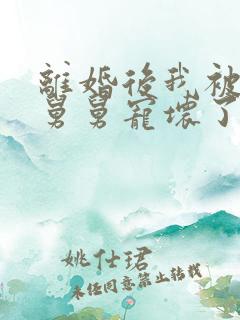 離婚後我被
舅舅寵壞了
姚仕珺
未經同意禁止轉載